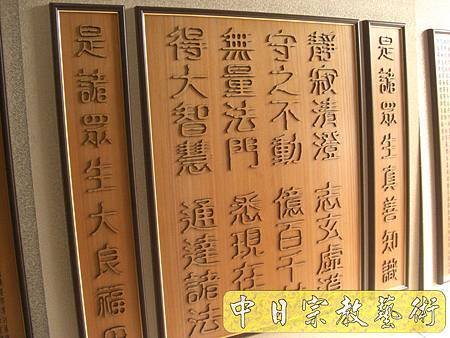 是諸眾生真善知識
靜寂清澄 志玄虛
守之不動 億百千
無量法門 悉現在
得大智慧 通達諸法
是諸眾生大良福
中日宗教藝術